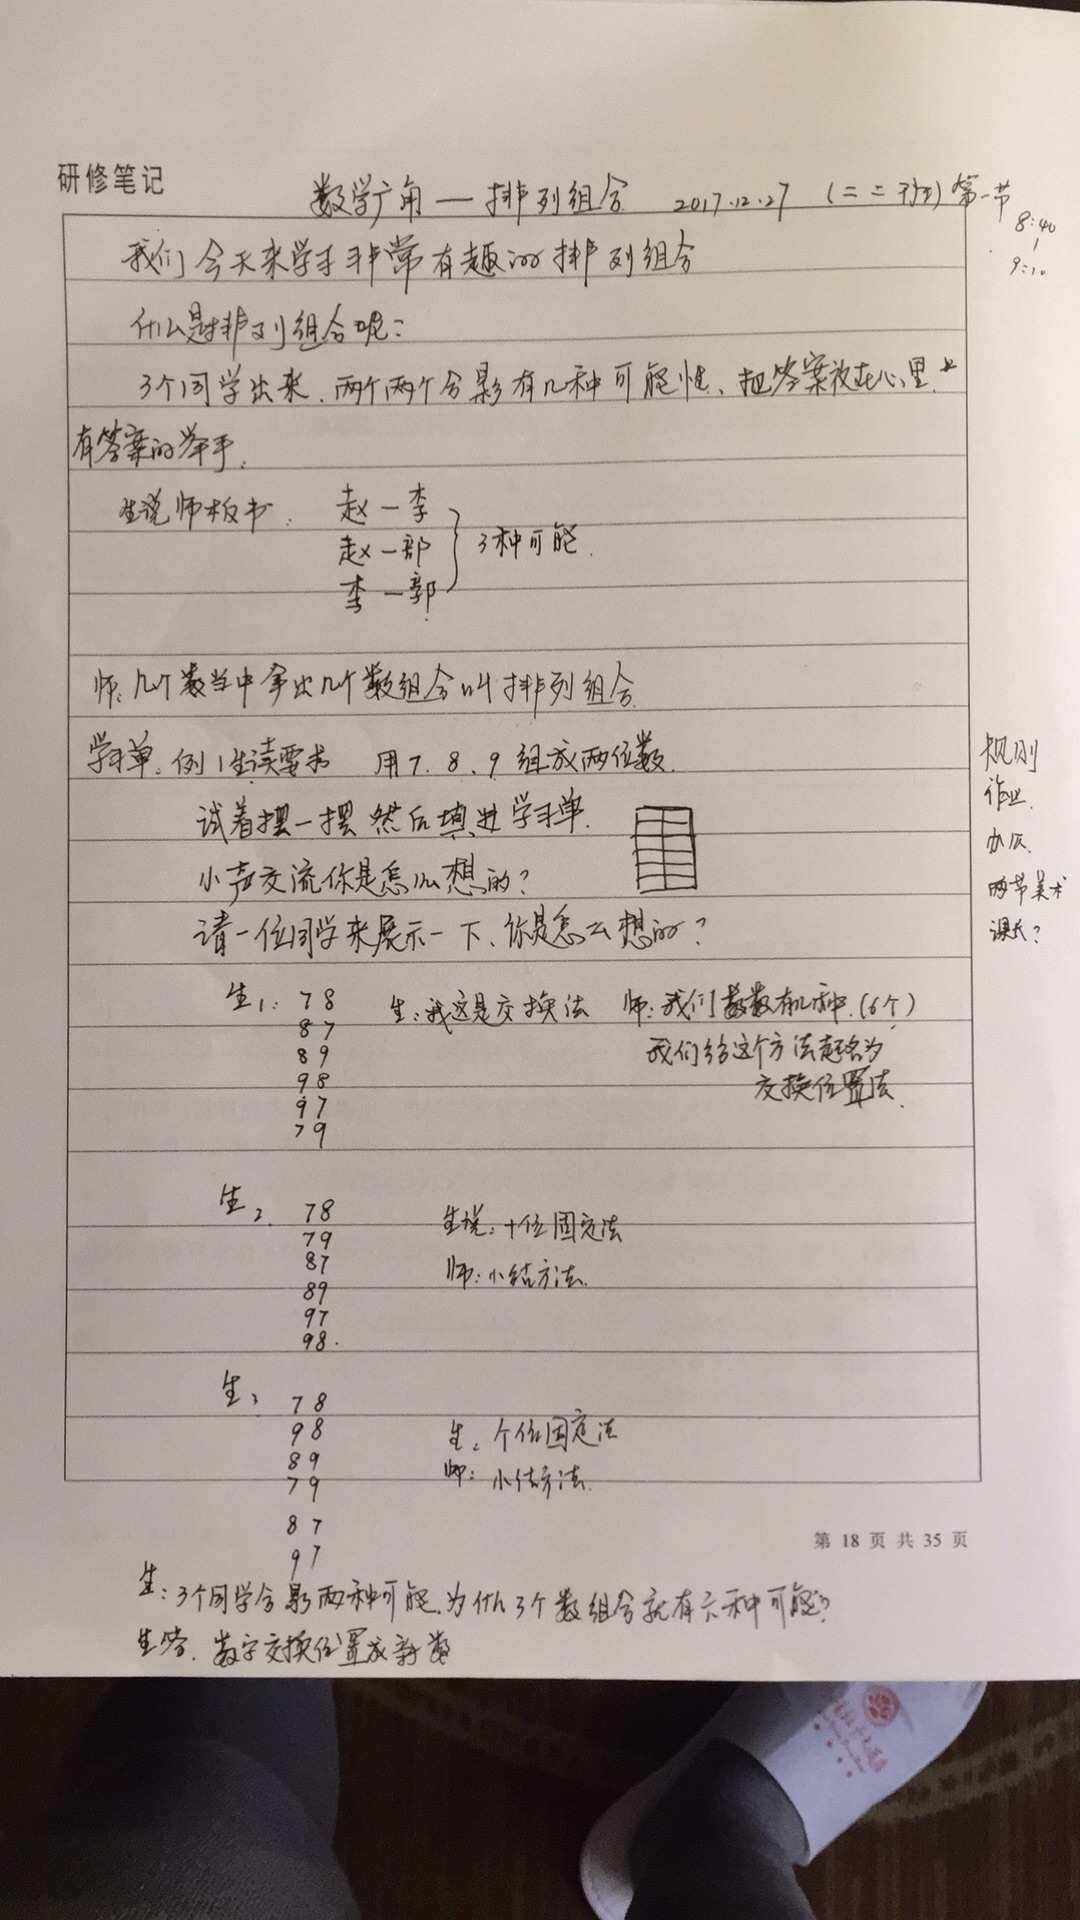 研修笔记
数学广角—排列组合 2017.12.27 (二 二 班) 第一节
8:40
9:10
我们今天来学习非常有趣的排列组合
什么是排列组合呢?
3个同学出来.两个两个合影有几种可能性、把答案放在心里.
有答案的举手.
生说师板书: 赵一李
赵一郭 3种可能.
李一郭
师:几个数当中拿出几个数组合叫排列组合.
学习单:例1生读要求 用7.8.9组成两位数.
试着摆一摆 然后填进学习单.
小声交流你是怎么想的?
请一位同学来展示一下、你是怎么想的?
规则
作业.
两节美术
课长?
生1: 78 生:我这是交换法 师:我们数数有几种.(6个)
87 我们给这个方法起名为
89 交换位置法.
98
97
79
生2. 78 生说:十位固定法
79 师:小结方法.
87
89
97
98.
生3 78
98 生:个位固定法
89 师:小结方法.
79
87
97
第 18 页 共 35 页
生:3个同学合影两种可能.为什么3个数组合就有六种可能?
生答.数字交换位置成新数